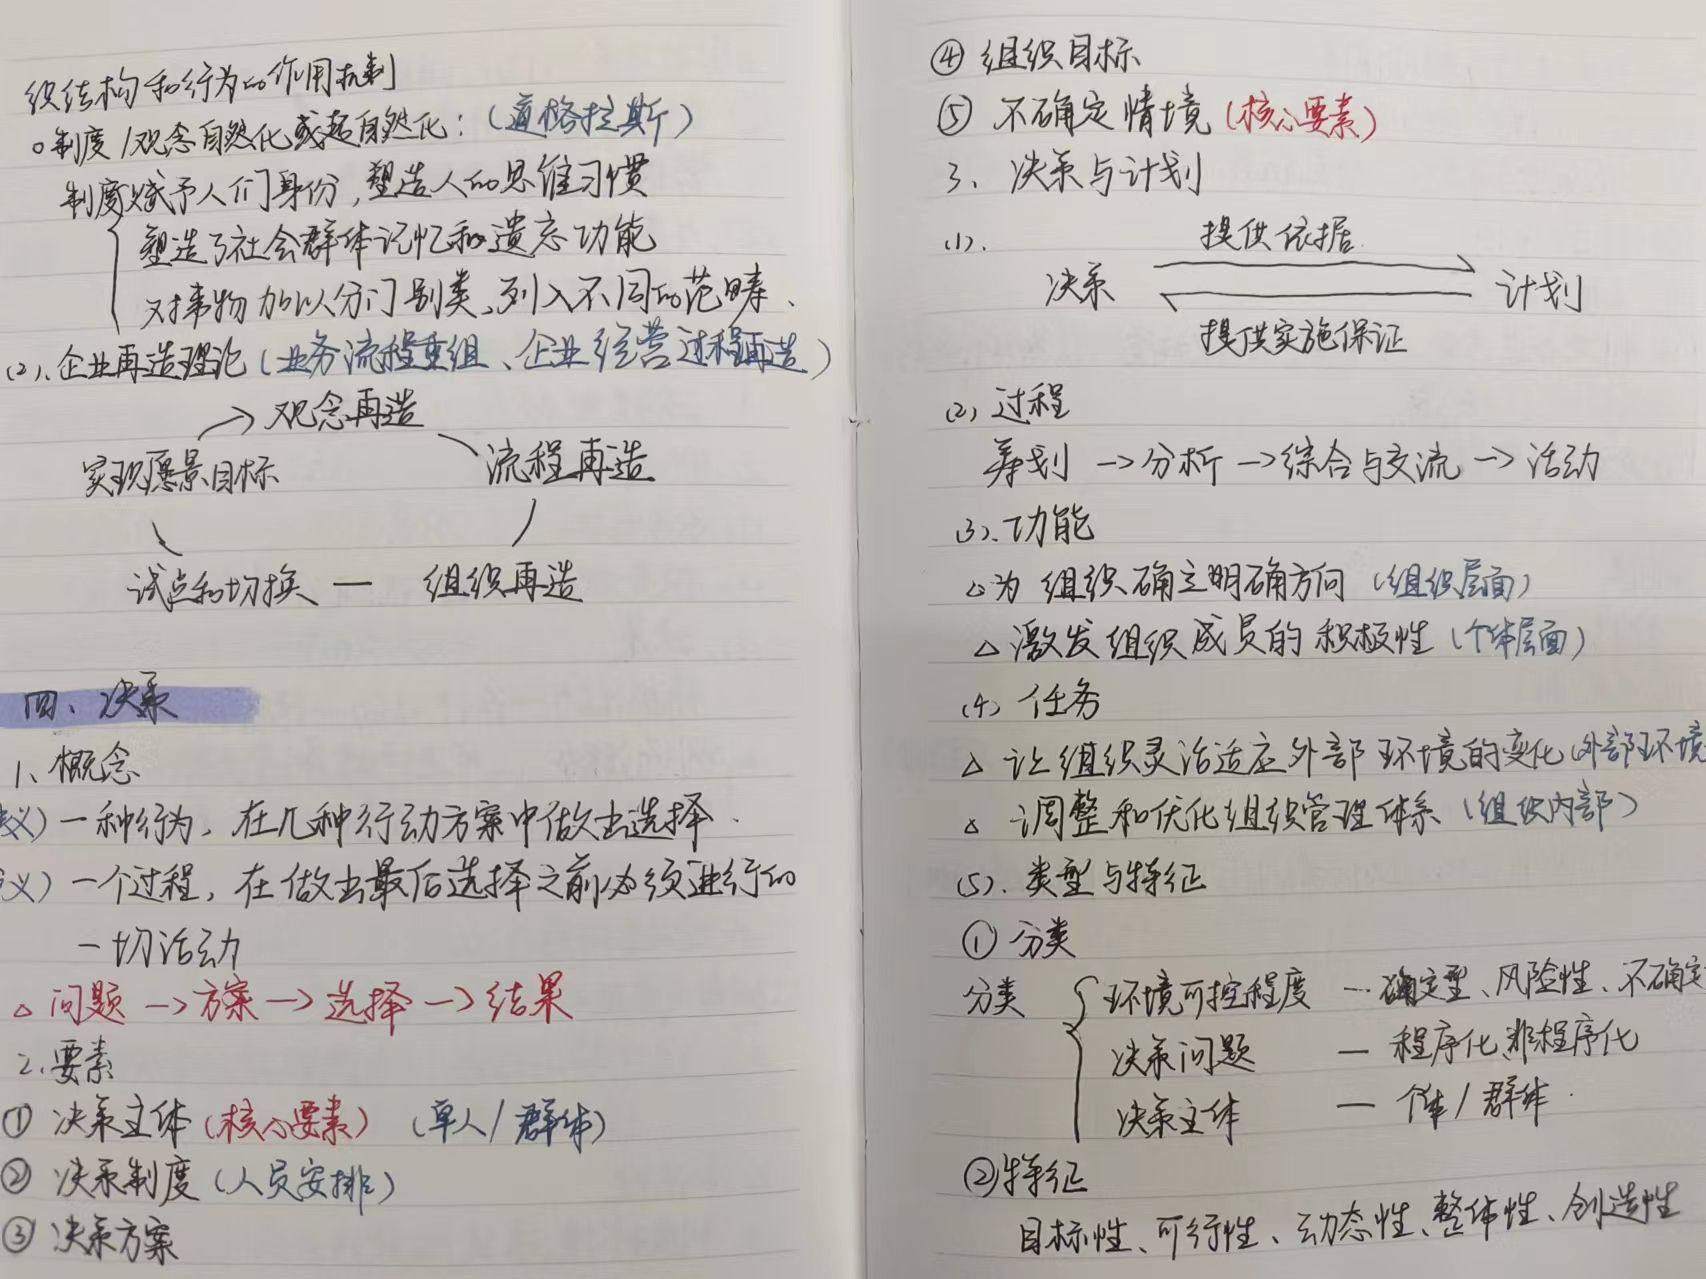 织结构和行为的作用机制
。制度/观念自然化或超自然化:(道格拉斯)
制度赋予人们身份,塑造人的思维习惯
塑造了社会群体记忆和遗忘功能
对事物加以分门别类、列入不同的范畴.
(2)、企业再造理论(业务流程重组、企业经营过程再造)
→观念再造
实现愿景目标 流程再造
试点和切换 — 组织再造
四、决策
1、概念
义)一种行为,在几种行动方案中做出选择.
义)一个过程,在做出最后选择之前必须进行的
一切活动
△问题→方案→选择→结果
2.要素
①决策主体(核心要素)(单人/群体)
②决策制度(人员安排)
③决策方案
④组织目标
⑤不确定情境(核心要素)
3、决策与计划
(1). 提供依据
决策 计划
提供实施保证
(2)过程
筹划→分析→综合与交流→活动
(3).功能
△为组织确立明确方向(组织层面)
△激发组织成员的积极性(个体层面)
(4)任务
△让组织灵活适应外部环境的变化(外部环境
△调整和优化组织管理体系(组织内部)
(5).类型与特征
①分类
分类 环境可控程度 — 确定型、风险性、不确定
决策问题 — 程序化、非程序化
决策主体 — 个体/群体.
②特征
目标性、可行性、动态性、整体性、创造性